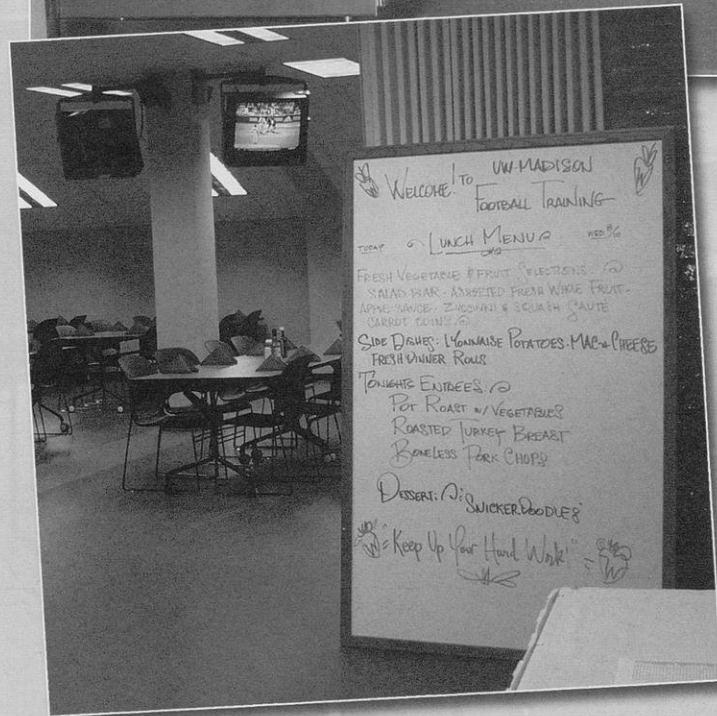 UW-MADISON
WELCOME! TO
FOOTBALL TRAINING
TODAY LUNCH MENU WED 8/6
FRESH VEGETABLE & FRUIT SELECTIONS:
SALAD BAR - ASSORTED FRESH WHOLE FRUIT -
APPLE SAUCE - ZUCCHINI & SQUASH SAUTE
CARROT COINS
SIDE DISHES: LYONNAISE POTATOES - MAC-N-CHEESE
FRESH DINNER ROLLS
TONIGHTS ENTREES:
POT ROAST W/ VEGETABLES
ROASTED TURKEY BREAST
BONELESS PORK CHOPS
DESSERT: SNICKERDOODLES
"Keep Up Your Hard Work!"